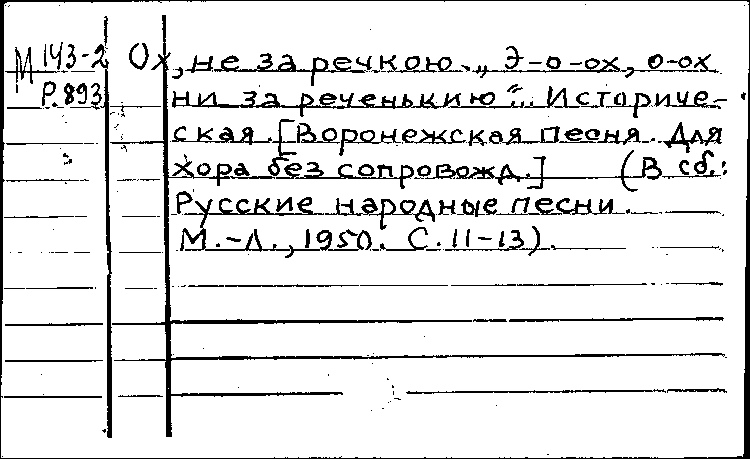 М 143-2 Ох, не за речкою. „Э-о-ох, о-ох
Р.893 ни за реченькию“... Историче-
ская. [Воронежская песня. Для
хора без сопровожд.] (В сб.:
Русские народные песни.
М.-Л., 1950. С. 11-13).